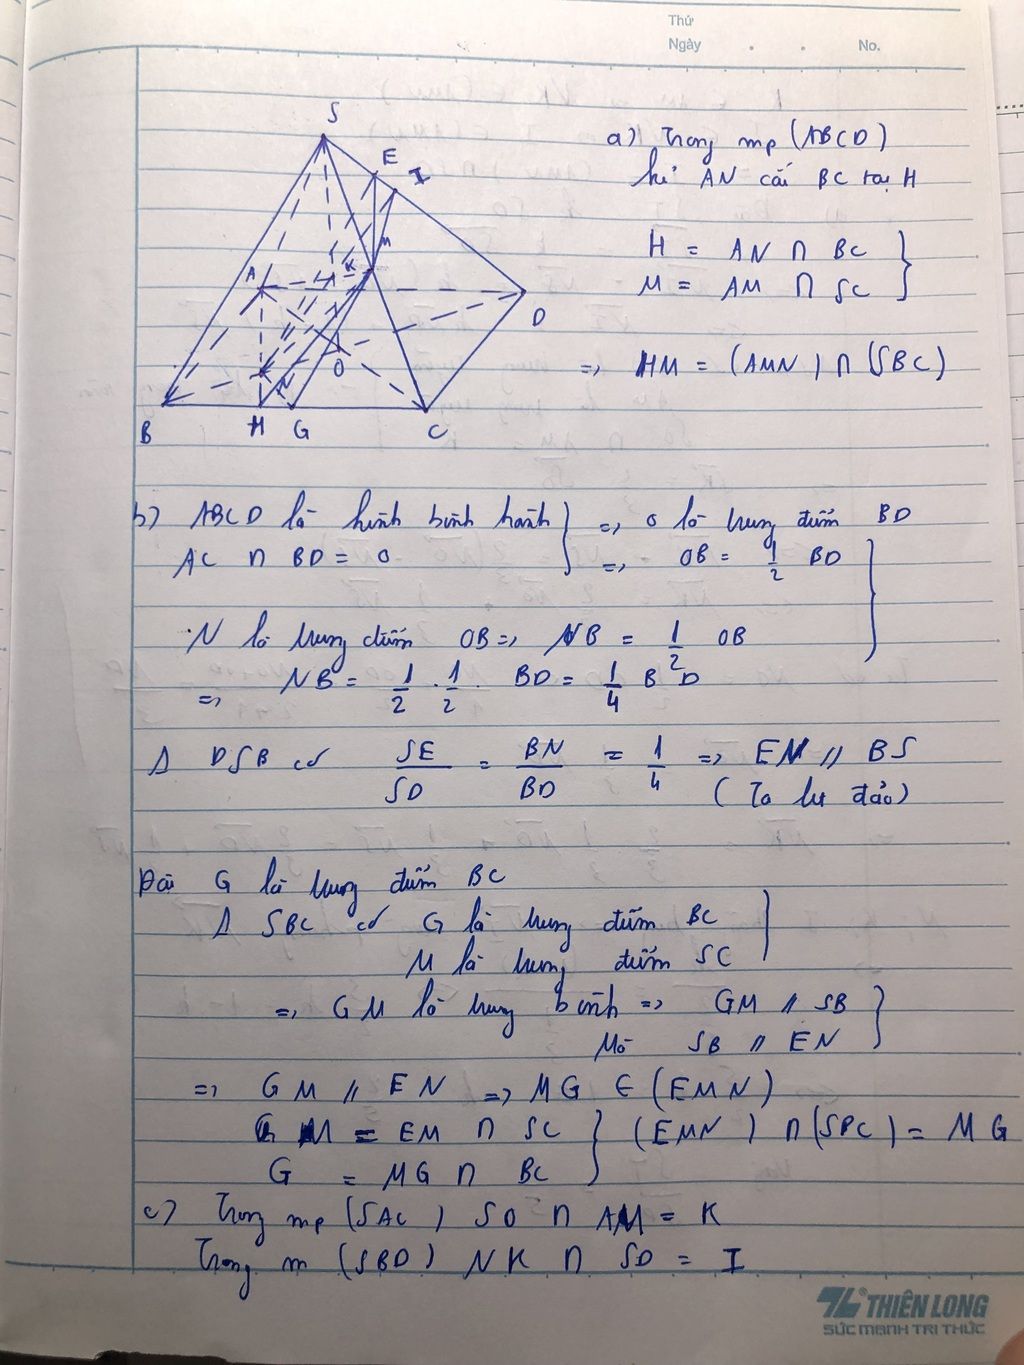 Thứ
Ngày . . No.
S
E
I
M
K
A
D
O
N
B
H
G
C
a) Trong mp (ABCD)
kẻ AN cắt BC tại H
H = AN ∩ BC
M = AM ∩ SC }
=> HM = (AMN) ∩ (SBC)
b) ABCD là hình bình hành } => O là trung điểm BD
AC ∩ BD = O => OB = 1/2 BD
N là trung điểm OB => NB = 1/2 OB }
=> NB = 1/2 . 1/2 . BD = 1/4 BD
Δ DSB có SE/SD = BN/BD = 1/4 => EN // BS
(Ta lét đảo)
G là trung điểm BC
Δ SBC có G là trung điểm BC
M là trung điểm SC }
=> GM là trung bình => GM // SB
Mà SB // EN }
=> GM // EN => MG ∈ (EMN)
M = EM ∩ SC } (EMN) ∩ (SBC) = MG
G = MG ∩ BC
c) Trong mp (SAC) SO ∩ AM = K
Trong m (SBD) NK ∩ SD = I
TL ® THIÊN LONG
SỨC MẠNH TRI THỨC